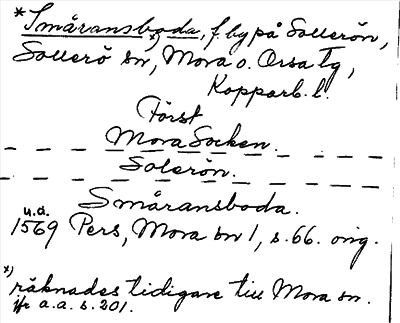 *Småransboda, f. by på Sollerön,
Sollerö sn *), Mora o. Orsa tg,
Kopparb. l.
Först
Mora Socken.
Solerön.
Småransboda.
u.d.
1569 Pers, Mora sn 1, s. 66. orig.
*)
räknades tidigare till Mora sn.
jfr a.a. s. 201.